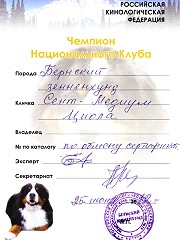 РОССИЙСКАЯ
КИНОЛОГИЧЕСКАЯ
ФЕДЕРАЦИЯ
Чемпион
Национального Клуба
Порода Бернский
зенненхунд
Кличка Сент-Медиум
Циола
Владелец
№ по каталогу по обмену сертификат.
Эксперт
Секретариат
25 июня